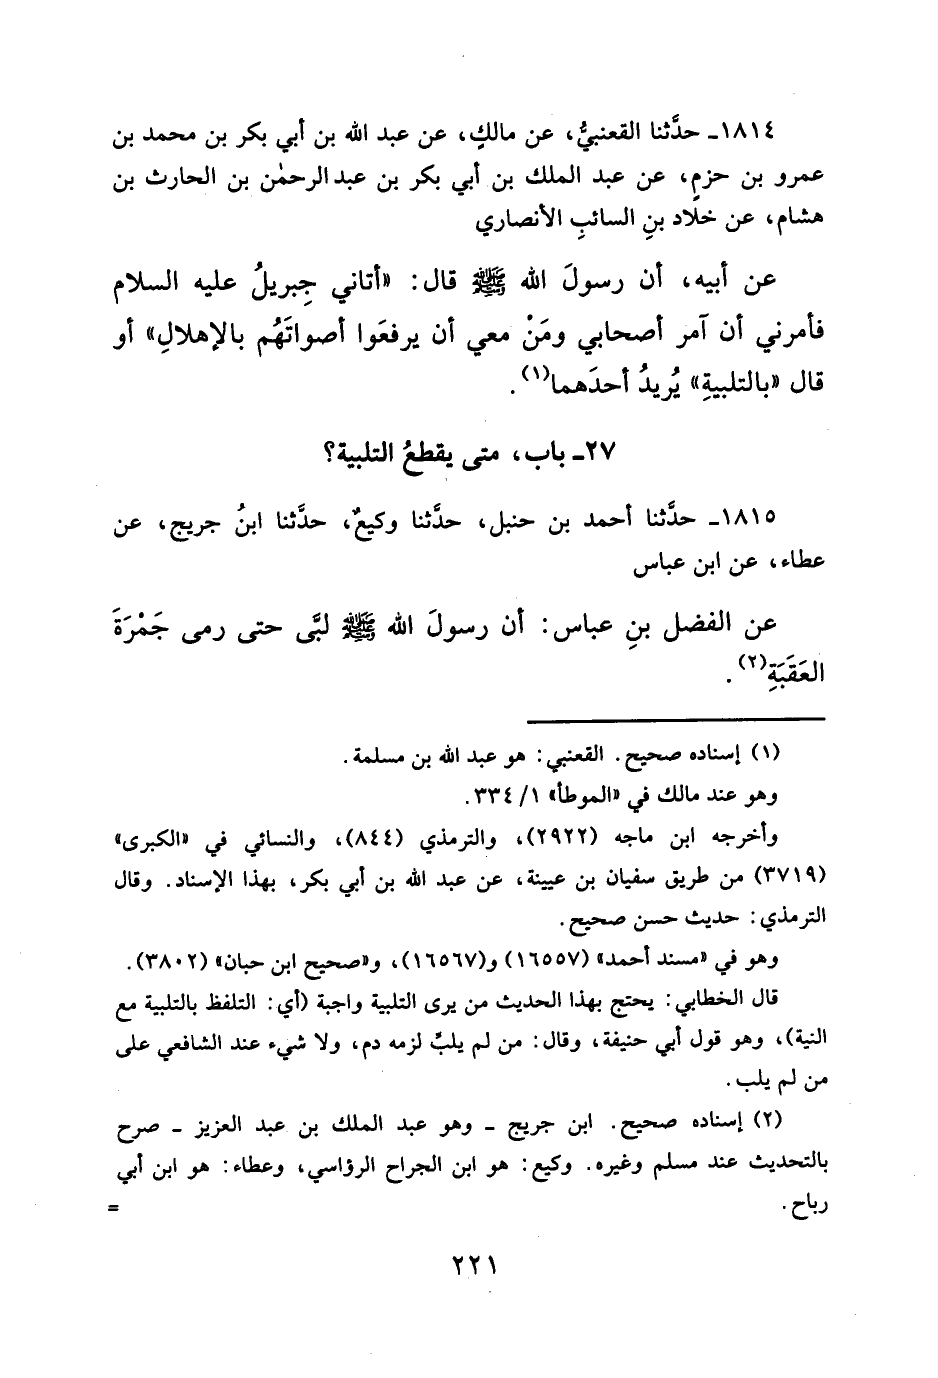 ١٨١٤ـ حدَّثنا القعنبيُّ، عن مالكٍ، عن عبد الله بن أبي بكر بن محمد بن
عمرو بن حزمٍ، عن عبد الملك بن أبي بكر بن عبدالرحمٰن بن الحارث بن
هشام، عن خلَّاد بنِ السائبِ الأنصاري
عن أبيه، أن رسولَ الله ﷺ قال: «أتاني جِبريلُ عليه السلام
فأمرني أن آمر أصحابي ومَنْ معي أن يرفعَوا أصواتَهُم بالإهلالِ» أو
قال «بالتلبيةِ» يُريدُ أحدَهما(١).
٢٧ـ باب، متى يقطعُ التلبية؟
١٨١٥ـ حدَّثنا أحمد بن حنبل، حدَّثنا وكيعٌ، حدَّثنا ابنُ جريج، عن
عطاء، عن ابن عباس
عن الفضل بنِ عباس: أن رسولَ الله ﷺ لبَّى حتى رمى جَمْرَةَ
العَقَبَةِ(٢).
(١) إسناده صحيح. القعنبي: هو عبد الله بن مسلمة.
وهو عند مالك في «الموطأ» ١/ ٣٣٤.
وأخرجه ابن ماجه (٢٩٢٢)، والترمذي (٨٤٤)، والنسائي في «الكبرى»
(٣٧١٩) من طريق سفيان بن عيينة، عن عبد الله بن أبي بكر، بهذا الإسناد. وقال
الترمذي: حديث حسن صحيح.
وهو في «مسند أحمد» (١٦٥٥٧) و(١٦٥٦٧)، و«صحيح ابن حبان» (٣٨٠٢).
قال الخطابي: يحتج بهذا الحديث من يرى التلبية واجبة (أي: التلفظ بالتلبية مع
النية)، وهو قول أبي حنيفة، وقال: من لم يلبِّ لزمه دم، ولا شيء عند الشافعي على
من لم يلب.
(٢) إسناده صحيح. ابن جريج ـ وهو عبد الملك بن عبد العزيز ـ صرح
بالتحديث عند مسلم وغيره. وكيع: هو ابن الجراح الرؤاسي، وعطاء: هو ابن أبي
رباح. =
٢٢١